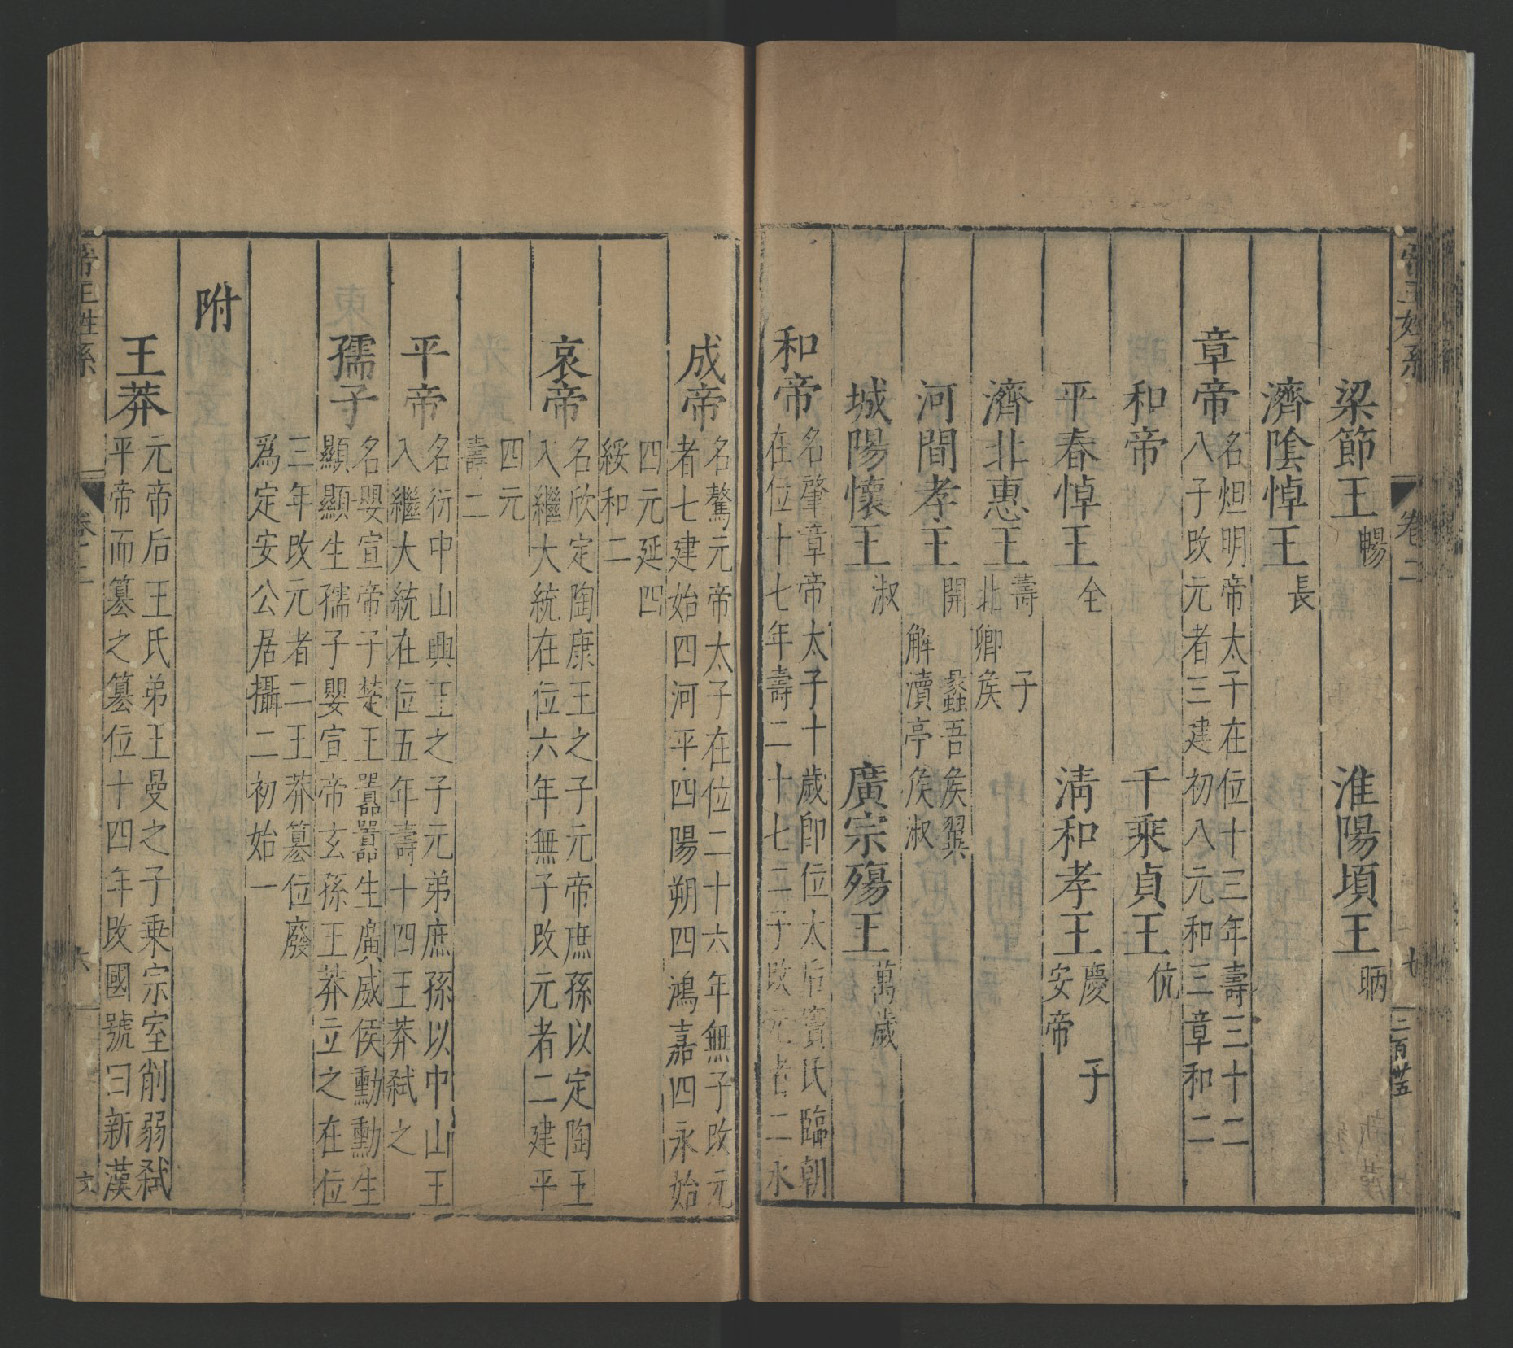 帝王姓系 卷二 廿 二百廿五
梁節王暢 淮陽頃王昞
濟陰悼王長
章帝名炟明帝太子在位十三年壽三十二
八子改元者三建初八元和三章和二
和帝 千乘貞王伉
平春悼王全 清和孝王慶 子
安帝
濟北惠王壽 子
北鄉侯
河間孝王開 蠡吾侯翼
解瀆亭侯淑
城陽懷王淑 廣宗殤王萬歲
和帝名肇章帝太子十歲卽位太后竇氏臨朝
在位十七年壽二十七二子改元者二永
成帝名驁元帝太子在位二十六年無子改元
者七建始四河平四陽朔四鴻嘉四永始
四元延四
綏和二
哀帝名欣定陶康王之子元帝庶孫以定陶王
入繼大統在位六年無子改元者二建平
四元
壽二
平帝名衍中山興王之子元弟庶孫以中山王
入繼大統在位五年壽十四王莽弒之
孺子名嬰宣帝子楚王囂囂生廣威侯勳勳生
顯顯生孺子嬰宣帝玄孫王莽立之在位
三年改元者二王莽篡位廢
爲定安公居攝二初始一
附
王莽元帝后王氏弟王曼之子乘宗室削弱弒
平帝而篡之篡位十四年改國號曰新漢
帝王姓系 卷二 六